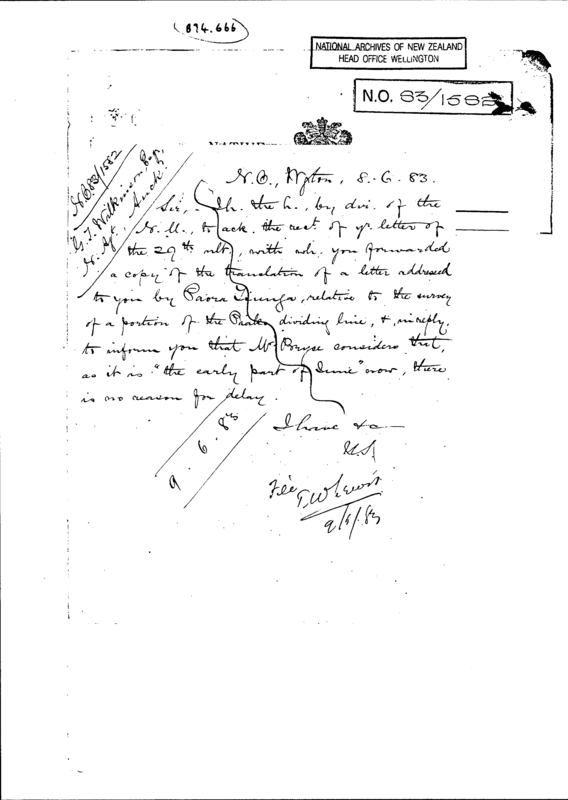 (874.666)
NATIONAL ARCHIVES OF NEW ZEALAND
HEAD OFFICE WELLINGTON
N.O. 83/1582
NATIVE
N.O 83/1582
G. T. Wilkinson Esq.
N. Agt. Auck.
N.O., Wgton, 8.6.83.
Sir, I h. the h., by dir. of the
N. M., to ack. the rect. of yr. letter of
the 29th ult, with wh. you forwarded
a copy of the translation of a letter addressed
to you by Paora Tiunga, relative to the survey
of a portion of the dividing line, & in reply,
to inform you that Mr Bryce considers that,
as it is "the early part of June" now, there
is no reason for delay.
I have &c
U.S.
9.6.83
File
T W Lewis
9/6/83